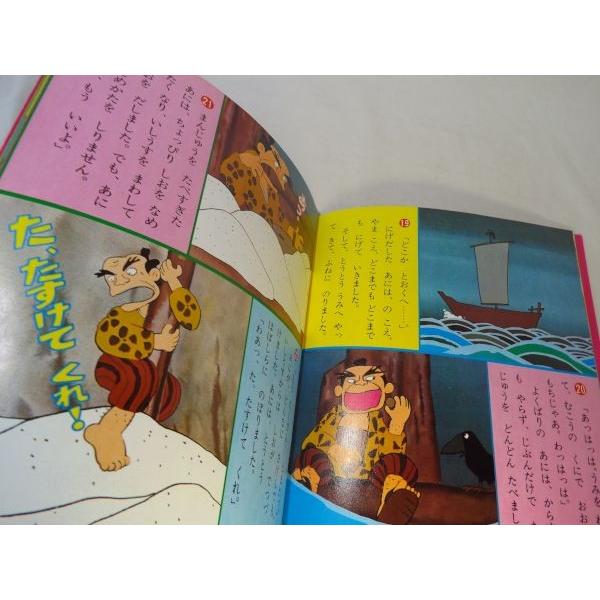 ⑲
「どこか とおくへ……」
にげだした あには、の こえ、
やま こえ、どこまでも どこまで
も にげて いきました。
そして、とうとう うみへ やっ
て きて、ふねに のりました。
⑳
「あっはっは、うみを
て、むこうの くにで、おお
もちじゃあ。わっはっは」
よくばりの あには、から
も やらず、じぶんだけで
じゅうを どんどん たべまし
㉑
まんじゅうを たべすぎた
あには、ちょっぴり しおを なめ
たくなり、いしうすを まわして
おを だしました。でも、あに
めかたを しりません。
もう いいよ」
た、たすけて くれ!
ほばしらに のぼりました。
「わあっ、た、たすけて くれ」